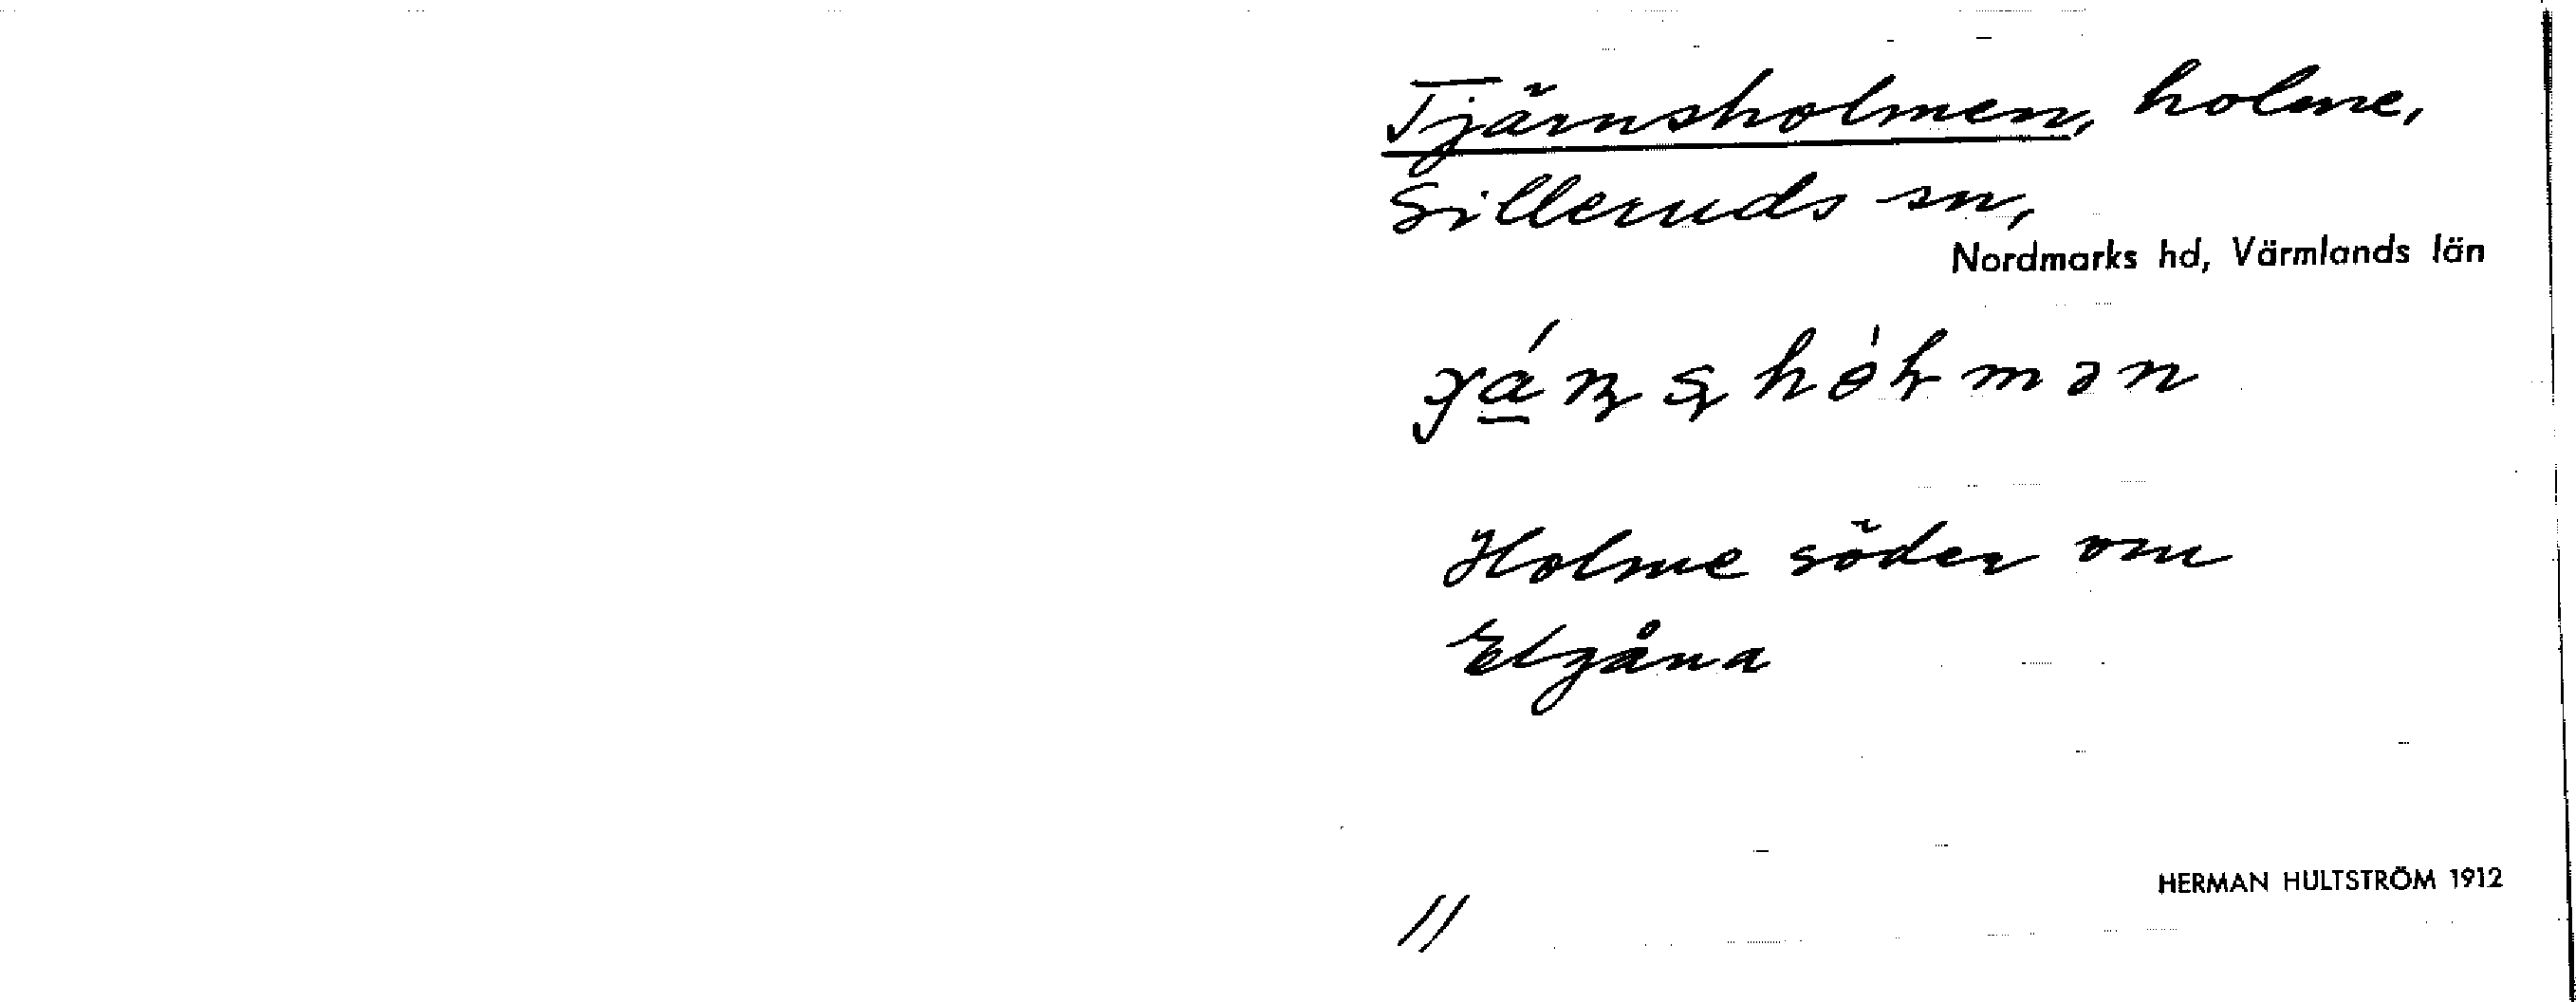 Tjärnsholmen, holme,
Silleruds sn,
Nordmarks hd, Värmlands län
Holme söder om
Elgåna
HERMAN HULTSTRÖM 1912
11